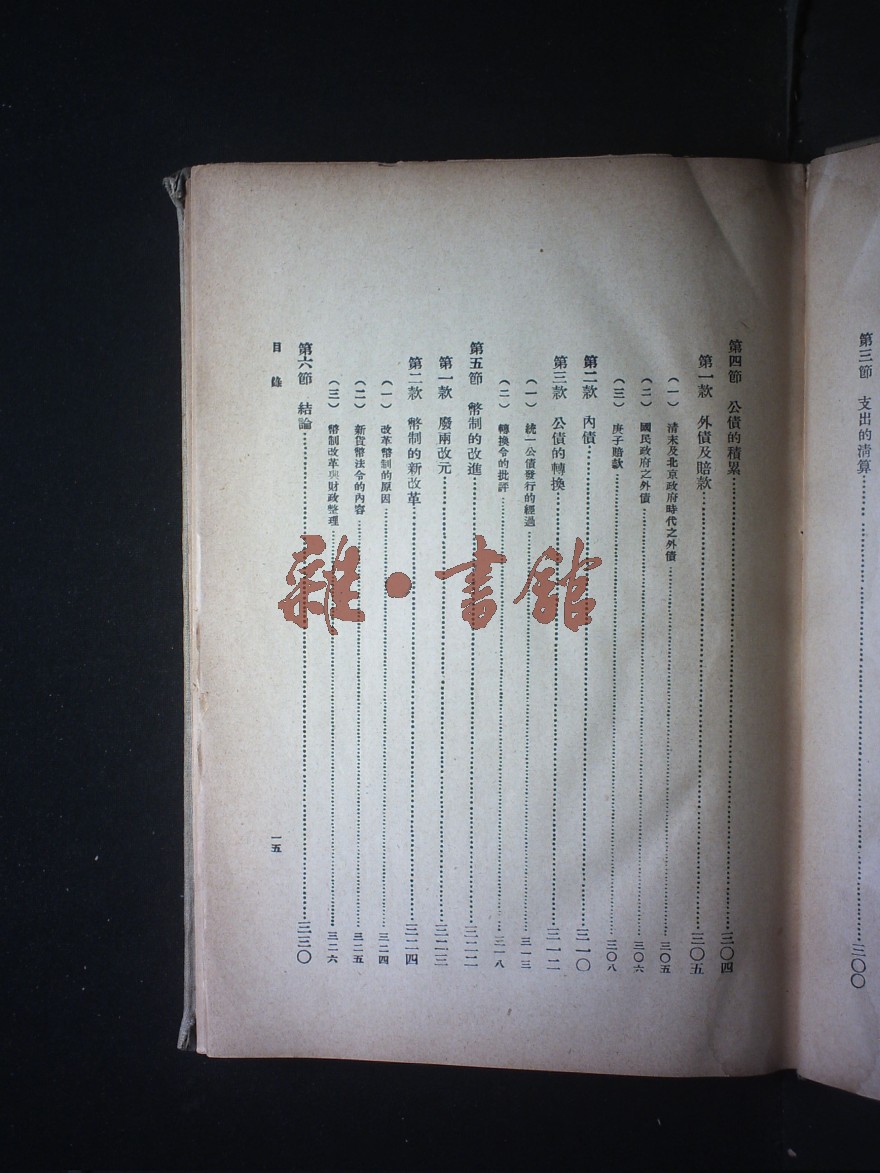 第三節　支出的清算……三〇〇
第四節　公債的積累……三〇四
第一款　外債及賠款……三〇五
（一）　清末及北京政府時代之外債……三〇五
（二）　國民政府之外債……三〇六
（三）　庚子賠款……三〇八
第二款　內債……三一〇
第三款　公債的轉換……三一二
（一）　統一公債發行的經過……三一三
（二）　轉換令的批評……三一八
第五節　幣制的改進……三二二
第一款　廢兩改元……三二三
第二款　幣制的新改革……三二四
（一）　改革幣制的原因……三二四
（二）　新貨幣法令的內容……三二五
（三）　幣制改革與財政整理……三二六
第六節　結論……三三〇
目錄
一五
雜·書館